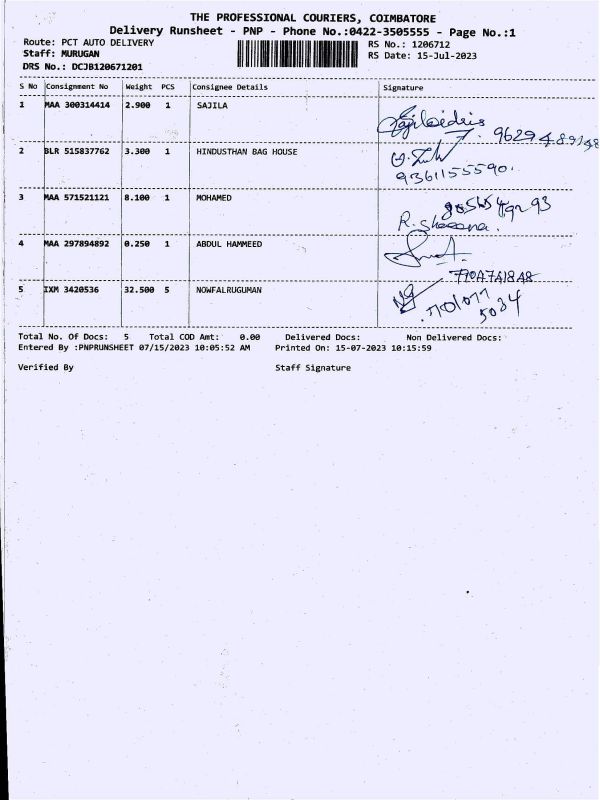 THE PROFESSIONAL COURIERS, COIMBATORE
Delivery Runsheet - PNP - Phone No.:0422-3505555 - Page No.:1
Route: PCT AUTO DELIVERY
RS No.: 1206712
Staff: MURUGAN
RS Date: 15-Jul-2023
DRS No.: DCJB120671201
S No Consignment No Weight PCS Consignee Details Signature
1 MAA 300314414 2.900 1 SAJILA
2 BLR 515837762 3.300 1 HINDUSTHAN BAG HOUSE
9361155590.
3 MAA 571521121 8.100 1 MOHAMED
4 MAA 297894892 0.250 1 ABDUL HAMMEED
5 IXM 3420536 32.500 5 NOWFALRUGUMAN
5034
Total No. Of Docs: 5 Total COD Amt: 0.00 Delivered Docs: Non Delivered Docs:
Entered By :PNPRUNSHEET 07/15/2023 10:05:52 AM Printed On: 15-07-2023 10:15:59
Verified By Staff Signature